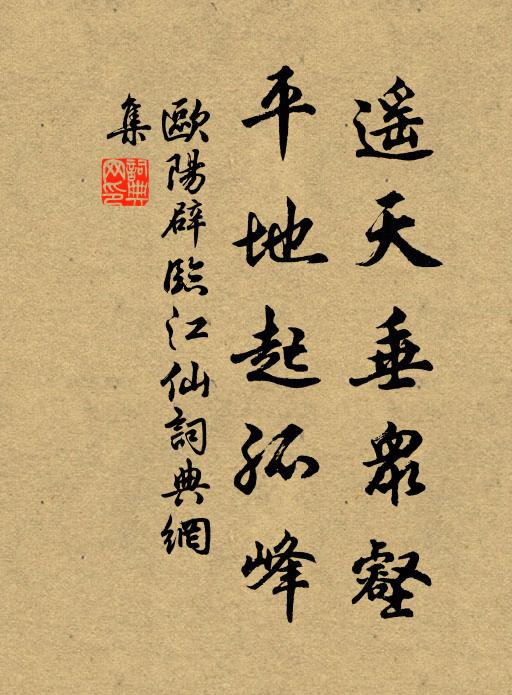 遥天垂衆壑
平地起孤峰
歐陽辟臨江仙詞典網
集
詞典
网印